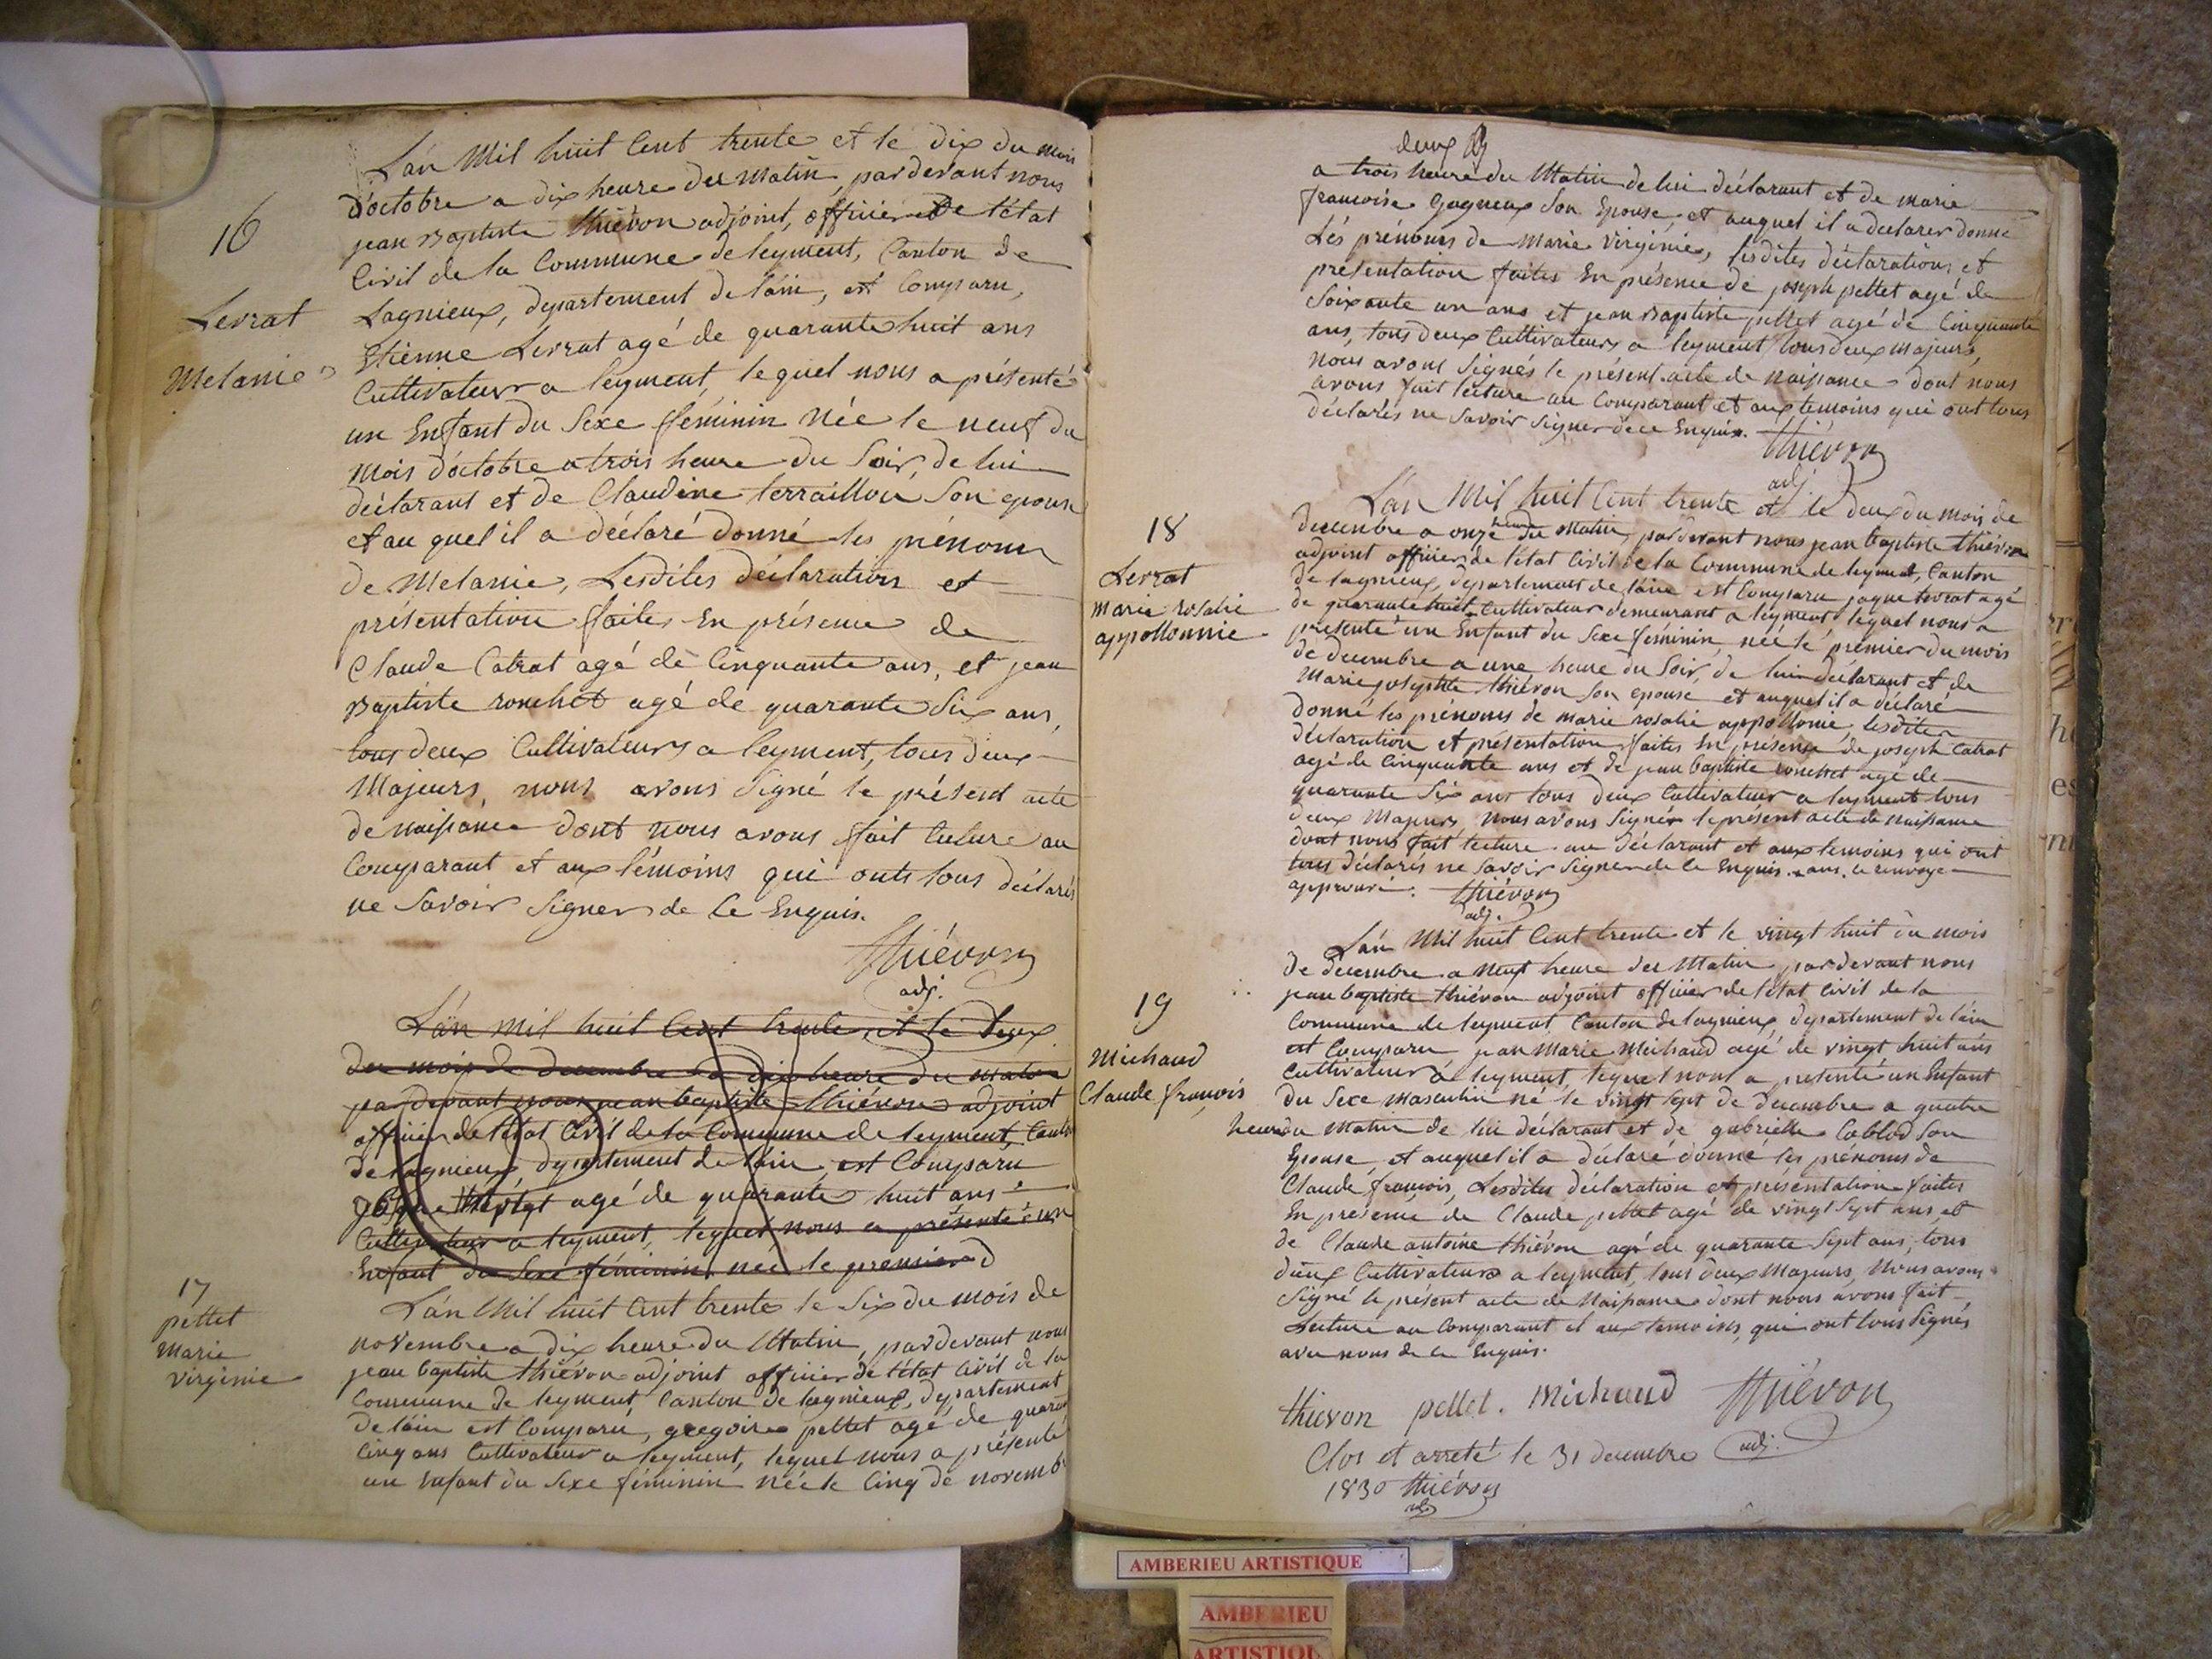 16
Levrat
Melanie
L'an Mil huit Cent trente et le dix du mois
d'octobre a dix heure du Matin, pardevant nous
jean Baptiste thiévon adjoint, officier de l'état
Civil de la Commune de leyment, Canton de
Lagnieux, departement de l'ain, est Comparu,
Etienne Levrat agé de quarante huit ans
Cultivateur a leyment, lequel nous a présenté
un Enfant du Sexe féminin Née le neuf du
Mois d'octobre a trois heure du Soir, de lui
déclarant et de Claudine terraillon Son epouse
et au quel il a déclaré donné les prénoms
de Melanie, Lesdites déclarations et
présentation faites En présence de
Claude Catrat agé de Cinquante ans, et jean
Baptiste ronchet agé de quarante Six ans,
tous deux Cultivateurs a leyment, tous deux
Majeurs, nous avons Signé le présent acte
de naissance dont nous avons fait lecture au
Comparant et aux témoins qui onts tous déclarés
ne Savoir Signer de Ce Enquis.
Thiévon
adj.
L'an mil huit Cent trente et le deux
du mois de decembre a dix heure du matin
par devant nous jean baptiste thiévon adjoint
officier de l'état Civil de la Commune de leyment, Canton
de lagnieux, departement de l'ain est Comparu
agé de quarante huit ans
Cultivateur a leyment, lequel nous a présenté un
Enfant du Sexe féminin née le premier d
17
pettet
marie
virginie
L'an Mil huit Cent trente le Six du mois de
novembre a dix heure du Matin, pardevant nous
jean baptiste thiévon adjoint officier de l'état Civil de la
Commune de leyment, Canton de lagnieux, departement
de l'ain est Comparu, gregoire pettet agé de quarante
Cinq ans Cultivateur a leyment, lequel nous a présenté
un Enfant du Sexe féminin Née le Cinq de novemb
deux
a trois heure du Matin de lui déclarant et de marie
françoise Gagneux Son Epouse et auquel il a declarer donné
Les prénoms de Marie Virginie, lesdites déclarations et
présentation faites En présence de joseph pettet agé de
Soixante un ans et jean Baptiste pettet agé de Cinquante
ans, tous deux Cultivateurs a leyment tous deux Majeurs,
nous avons Signés le présent acte de naissance dont nous
avons fait lecture au Comparant et aux temoins qui ont tous
déclarés ne Savoir Signer de ce Enquis.
Thiévon
adj.
18
Levrat
marie rosalie
appollonnie
L'an Mil huit Cent trente et le deux du mois de
decembre a onze heure du Matin, pardevant nous jean baptiste thiévon
adjoint officier de l'état Civil de la Commune de leyment, Canton
de lagnieux, departement de l'ain est Comparu jaque levrat agé
de quarante huit Cultivateur demeurant a leyment lequel nous a
présenté un Enfant du Sexe féminin, née le premier du mois
de decembre a une heure du Soir, de lui déclarant et de
Marie josephte thiévon Son epouse et auquel il a déclaré
donné les prénoms de marie rosalie appollonie, lesdites
déclaration et présentation faites En présence de joseph Catrat
agé de Cinquante ans et de jean baptiste ronchet agé de
quarante Six ans tous deux Cultivateur a leyment tous
deux Majeurs nous avons Signés le présent acte de naissance
dont nous fait lecture au déclarant et aux temoins qui ont
tous déclarés ne Savoir Signer de Ce Enquis. ans. ce renvoye
approuvé. Thiévon
adj.
19
Michaud
Claude françois
L'an Mil huit Cent trente et le vingt huit du mois
de decembre a neuf heure du Matin pardevant nous
jean baptiste thiévon adjoint officier de l'état Civil de la
Commune de leyment Canton de lagnieux, departement de l'ain
est Comparu jean Marie Michaud agé de vingt huit ans
Cultivateur a leyment, lequel nous a présenté un Enfant
du Sexe Masculin né le vingt sept de decembre a quatre
heure du Matin de lui déclarant et de gabrielle Cablod Son
Epouse et auquel il a declaré donné les prénoms de
Claude françois, Lesdites déclaration et présentation faites
En présence de Claude pettet agé de vingt Sept ans et
de Claude antoine thiévon agé de quarante Sept ans, tous
deux Cultivateurs a leyment, tous deux Majeurs, Nous avons
Signé le présent acte de Naissance dont nous avons fait
Lecture au Comparant et aux temoins, qui ont tous Signés
avec nous de Ce Enquis.
thievon pellet. Michaud Thiévon
adj.
Clos et arreté le 31 decembre
1830 Thiévon
adj
AMBERIEU ARTISTIQUE
AMBERIEU
ARTISTIQU